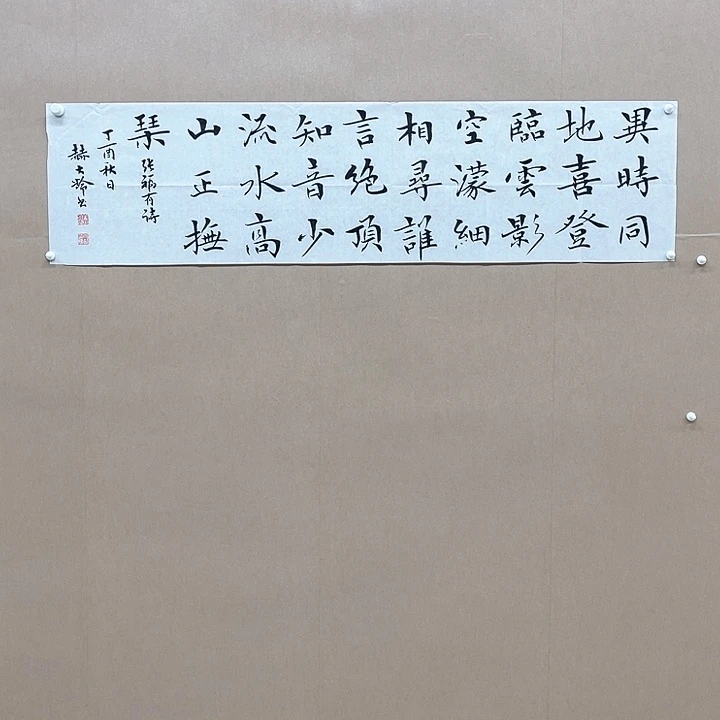 異時同
地喜登
臨雲影
空濛細
相尋誰
言絶頂
知音少
流水高
山正撫
琹
張福有詩
丁酉秋日
赫大書